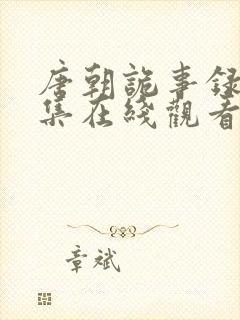 唐朝詭事録
集在綫觀看
章斌